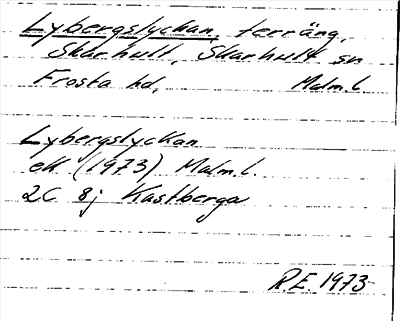 Lybergslyckan, terräng,
Skarhult, Skarhult sn
Frosta hd, Malm.l.
Lybergslyckan
ek (1973) Malm.l.
2C 8j Kastberga
R.E. 1973